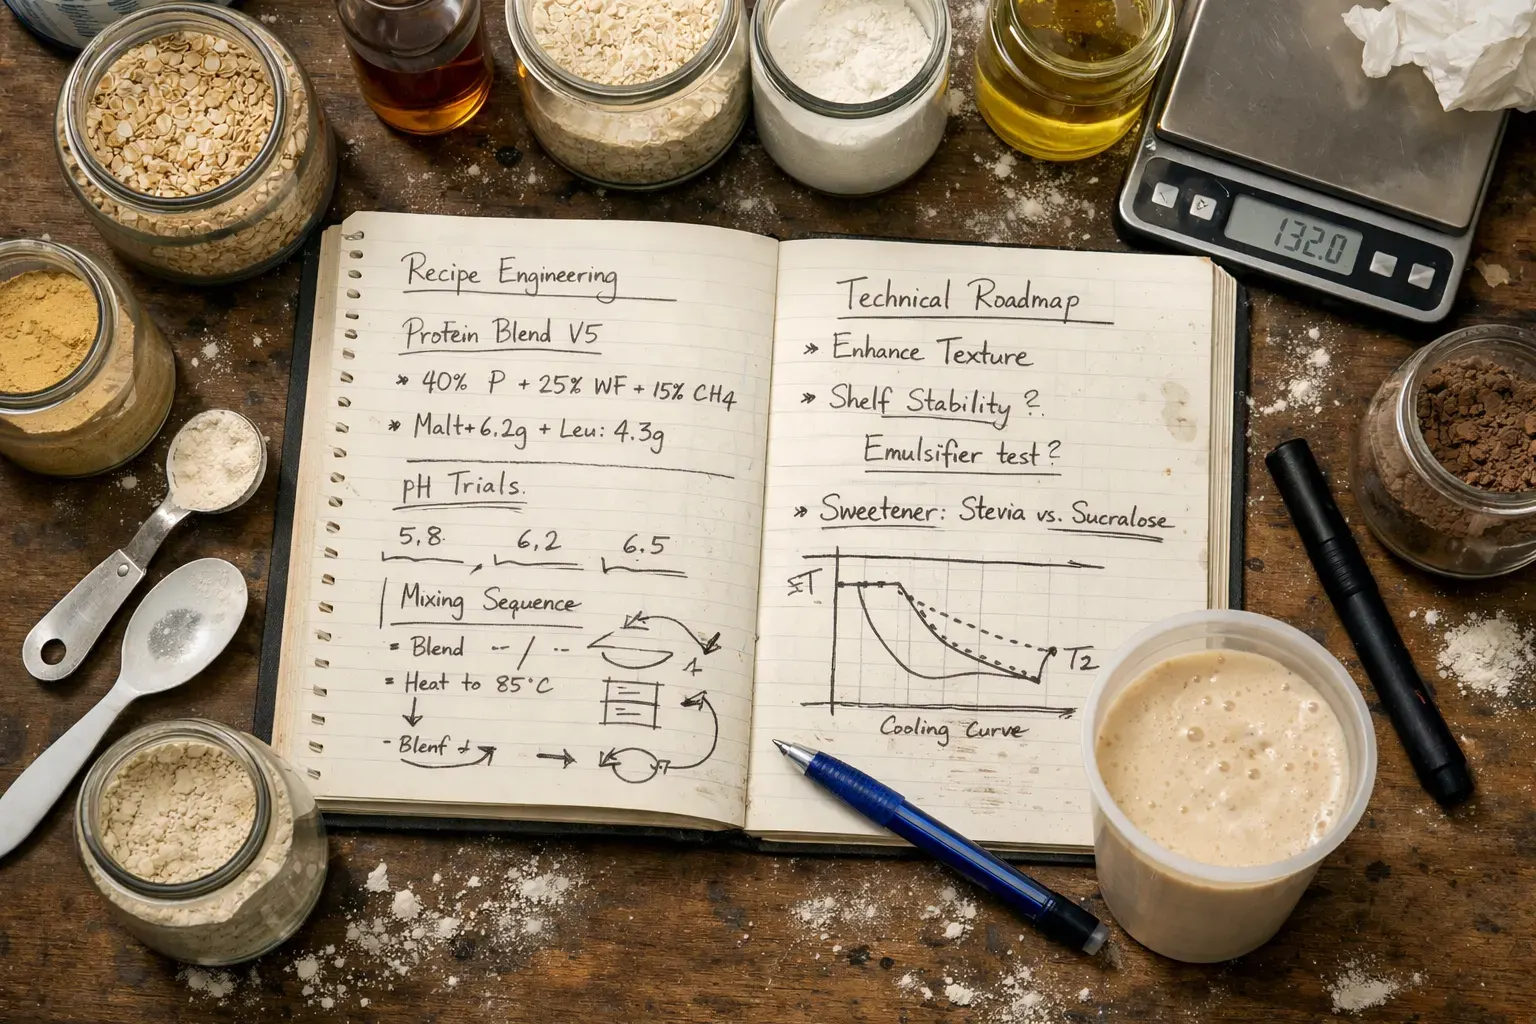 Recipe Engineering
Protein Blend V5
» 40% P + 25% WF + 15% CH4
* Malt+6.2g + Leu: 4.3g
pH Trials.
5,8. 6,2 6.5
Mixing Sequence
= Blend -- / --
= Heat to 85°C
- Blenf
Technical Roadmap
» Enhance Texture
» Shelf Stability ?.
Emulsifier test?
» Sweetener: Stevia vs. Sucralose
T2
Cooling Curve
132.0